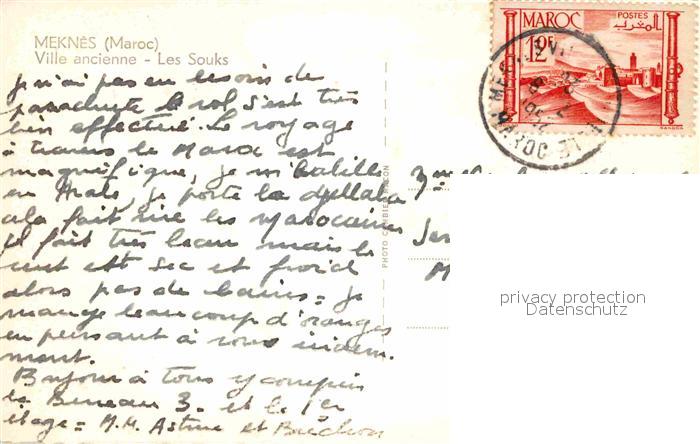 MEKNÈS (Maroc)
Ville ancienne - Les Souks
je n'ai pas eu besoin de
parachute le vol s'est très
bien effectué. Le voyage
à travers le Maroc est
magnifique, je m'habille
en Arabe, je porte la djellaba
cela fait rire les Marocaines
il fait très beau mais le
vent est sec et froid
alors pas de bains = je
mange beaucoup d'oranges
en pensant à vous
Bonjour à tous y compris
le Bureau 3. et le 1er
étage = M.M. Astruc et
PHOTO COMBIER MACON
MAROC
POSTES
المغرب
12F
MAROC
privacy protection
Datenschutz